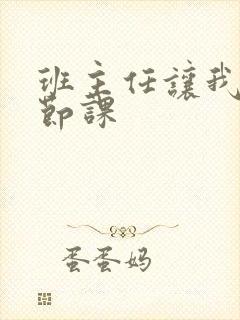 班主任讓我
節課
蛋蛋妈